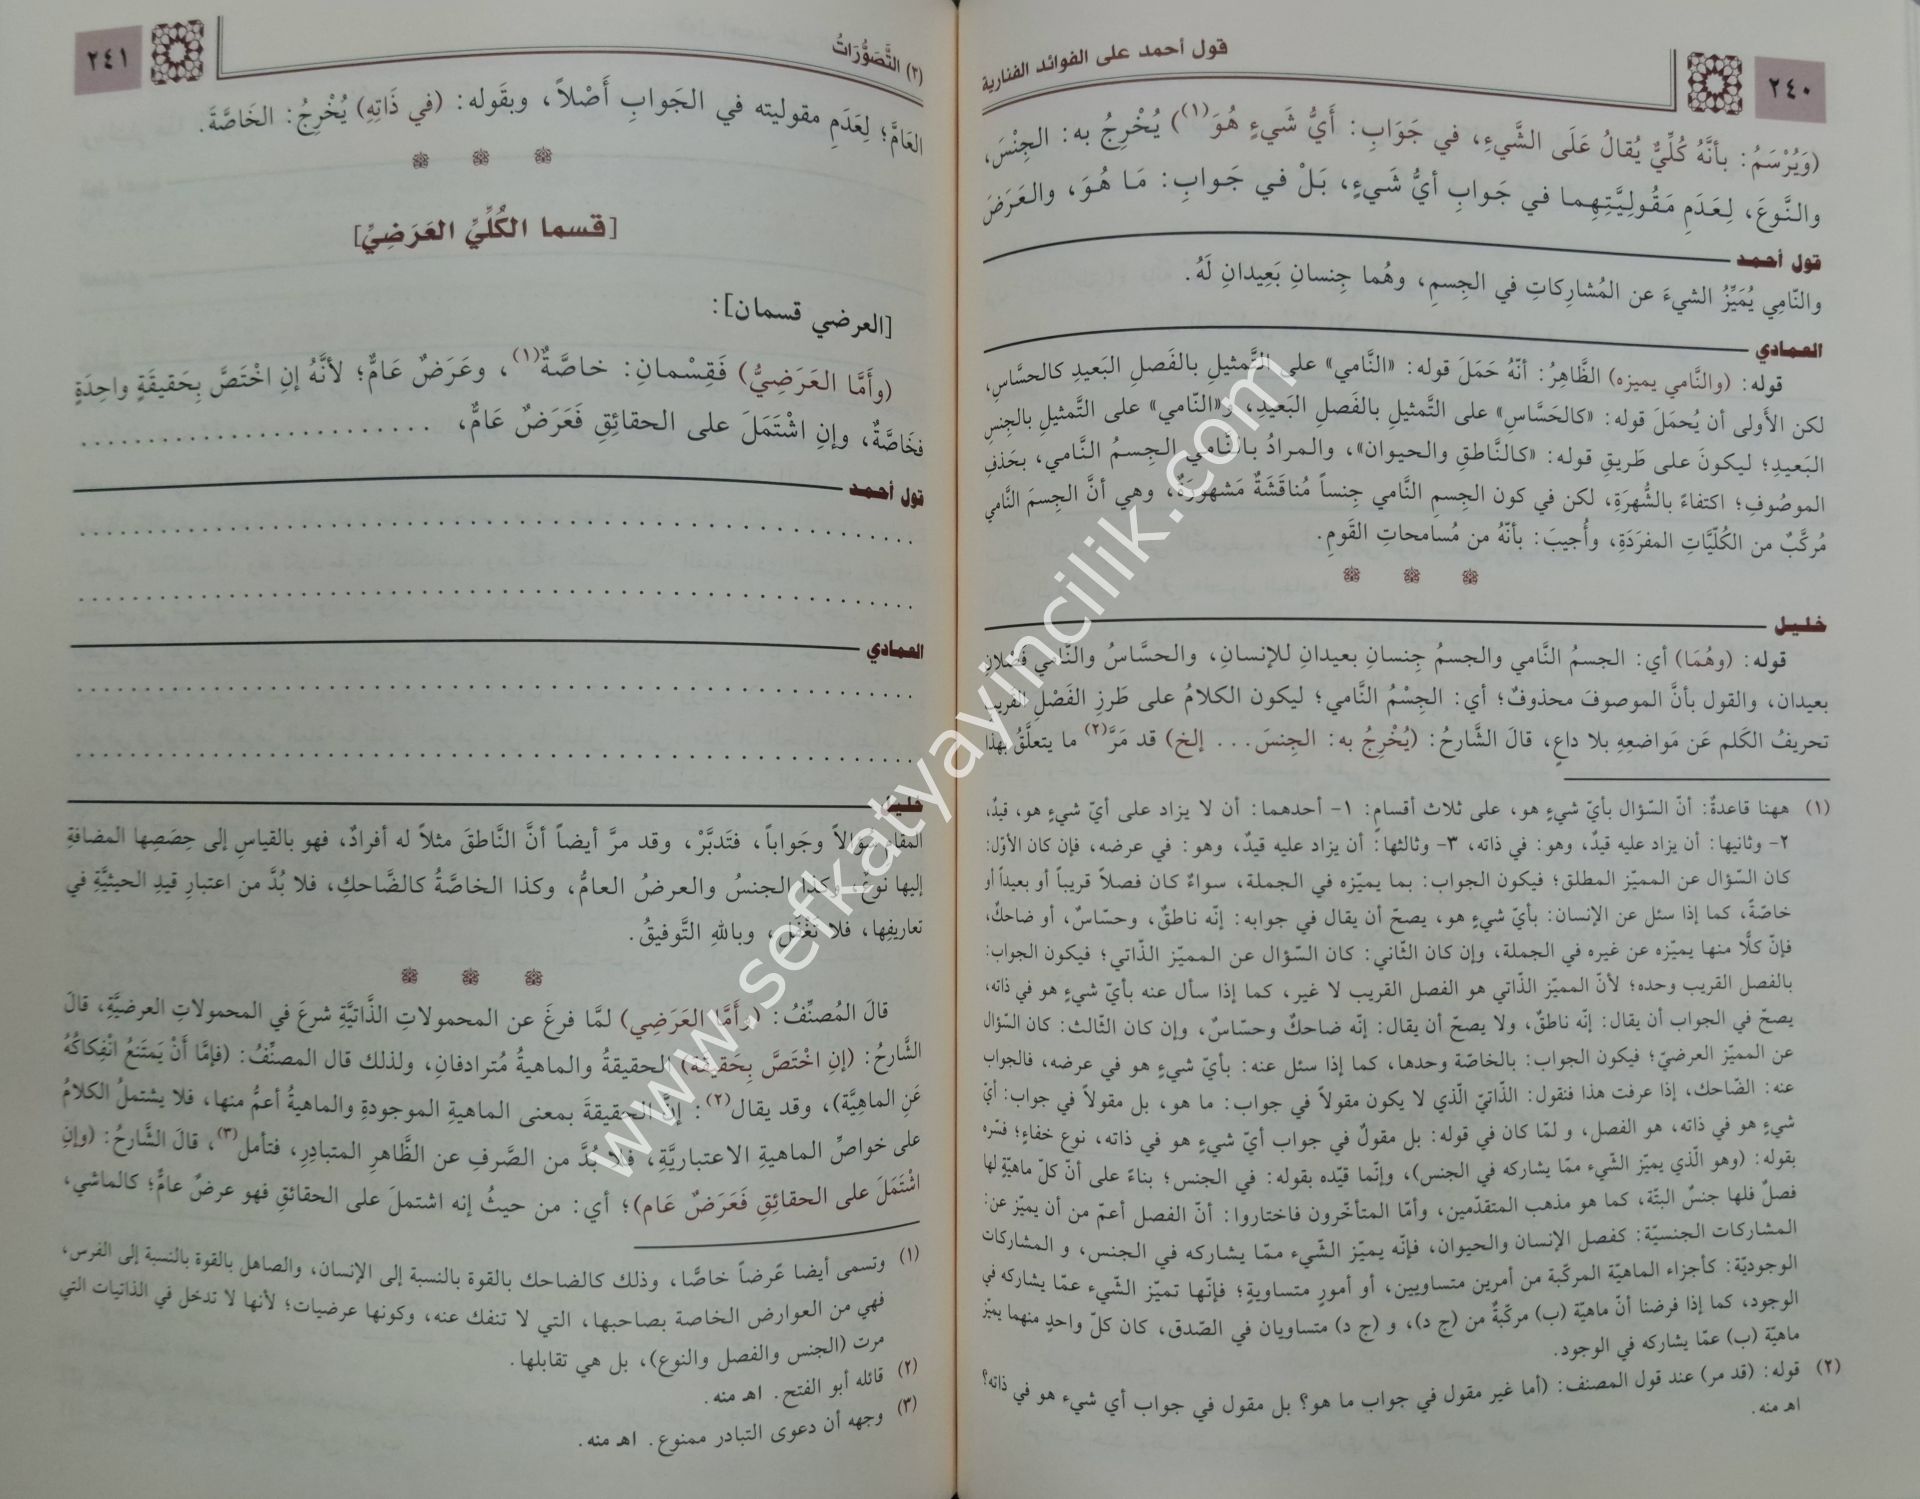 ٢٤٠
قول أحمد على الفوائد الفنارية
(وَيُرْسَمُ: بأنَّهُ كُلِّيٌّ يُقالُ عَلَى الشَّيءِ، في جَوَابِ: أَيُّ شَيءٍ هُوَ(١)) يُخْرِجُ به: الجِنْسَ،
والنَّوعَ، لِعَدَمِ مَقُولِيَّتِهِما في جَوابِ أيُّ شَيءٍ، بَلْ في جَوابِ: مَا هُوَ، والعَرَضَ
قول أحمد
والنّامِي يُمَيِّزُ الشيءَ عن المُشارِكاتِ في الجِسمِ، وهُما جِنسانِ بَعِيدانِ لَهُ.
العمادي
قوله: (والنَّامي يميزه) الظَّاهِرُ: أنّهُ حَمَلَ قوله: «النَّامي» على التَّمثيلِ بالفَصلِ البَعيدِ كالحسَّاسِ،
لكن الأَولى أن يُحمَلَ قوله: «كالحَسَّاسِ» على التَّمثيلِ بالفَصلِ البَعيدِ، و«النّامي» على التَّمثيلِ بالجِنسِ
البَعيدِ؛ ليكونَ على طَريقِ قوله: «كالنَّاطقِ والحيوان»، والمرادُ بالنَّامي الجِسمُ النَّامي، بحَذفِ
الموصُوفِ؛ اكتفاءً بالشُّهرَةِ، لكن في كون الجِسمِ النَّامي جِنساً مُناقَشَةٌ مَشهُورَةٌ، وهي أنَّ الجِسمَ النَّامي
مُركَّبٌ من الكُلّيَّاتِ المفرَدَةِ، وأُجيبَ: بأنّهُ من مُسامحاتِ القَومِ.
خليل
قوله: (وهُمَا) أي: الجسمُ النَّامي والجسمُ جِنسانِ بعيدانِ للإنسانِ، والحسَّاسُ والنَّامي فَصْلانِ
بعيدان، والقول بأنَّ الموصوفَ محذوفٌ؛ أي: الجِسْمُ النَّامي؛ ليكون الكلامُ على طَرزِ الفَصْلِ القريبِ
تحريفُ الكَلم عَن مَواضعِهِ بلا داعٍ، قالَ الشَّارحُ: (يُخْرِجُ به: الجِنسَ... إلخ) قد مَرَّ(٢) ما يتعلَّقُ بهذا
(١) ههنا قاعدةٌ: أنّ السّؤال بأيّ شيءٍ هو، على ثلاث أقسامٍ: ١- أحدهما: أن لا يزاد على أيّ شيءٍ هو، قيدٌ،
٢- وثانيها: أن يزاد عليه قيدٌ، وهو: في ذاته، ٣- وثالثها: أن يزاد عليه قيدٌ، وهو: في عرضه، فإن كان الأوّل:
كان السّؤال عن المميّز المطلق؛ فيكون الجواب: بما يميّزه في الجملة، سواءٌ كان فصلاً قريباً أو بعيداً أو
خاصّةً، كما إذا سئل عن الإنسان: بأيّ شيءٍ هو، يصحّ أن يقال في جوابه: إنّه ناطقٌ، وحسّاسٌ، أو ضاحكٌ،
فإنّ كلًّا منها يميّزه عن غيره في الجملة، وإن كان الثّاني: كان السّؤال عن المميّز الذّاتي؛ فيكون الجواب:
بالفصل القريب وحده؛ لأنّ المميّز الذّاتي هو الفصل القريب لا غير، كما إذا سأل عنه بأيّ شيءٍ هو في ذاته،
يصحّ في الجواب أن يقال: إنّه ناطقٌ، ولا يصحّ أن يقال: إنّه ضاحكٌ وحسّاسٌ، وإن كان الثّالث: كان السّؤال
عن المميّز العرضيّ؛ فيكون الجواب: بالخاصّة وحدها، كما إذا سئل عنه: بأيّ شيءٍ هو في عرضه، فالجواب
عنه: الضّاحك، إذا عرفت هذا فنقول: الذّاتيّ الّذي لا يكون مقولاً في جواب: ما هو، بل مقولاً في جواب: أيّ
شيءٍ هو في ذاته، هو الفصل، و لمّا كان في قوله: بل مقولٌ في جواب أيّ شيءٍ هو في ذاته، نوع خفاءٍ؛ فسّره
بقوله: (وهو الّذي يميّز الشّيء ممّا يشاركه في الجنس)، وإنّما قيّده بقوله: في الجنس؛ بناءً على أنّ كلّ ماهيّةٍ لها
فصلٌ فلها جنسٌ البتّة، كما هو مذهب المتقدّمين، وأمّا المتأخّرون فاختاروا: أنّ الفصل أعمّ من أن يميّز عن:
المشاركات الجنسيّة: كفصل الإنسان والحيوان، فإنّه يميّز الشّيء ممّا يشاركه في الجنس، و المشاركات
الوجوديّة: كأجزاء الماهيّة المركّبة من أمرين متساويين، أو أمورٍ متساويةٍ؛ فإنّها تميّز الشّيء عمّا يشاركه في
الوجود، كما إذا فرضنا أنّ ماهيّة (ب) مركّبةٌ من (ج د)، و (ج د) متساويان في الصّدق، كان كلّ واحدٍ منهما يميّز
ماهيّة (ب) عمّا يشاركه في الوجود.
(٢) قوله: (قد مر) عند قول المصنف: (أما غير مقول في جواب ما هو؟ بل مقول في جواب أي شيء هو في ذاته؟
اهـ منه.
(٢) التَّصَوُّرَاتُ
٢٤١
العَامَّ؛ لِعَدَمِ مقوليته في الجَوابِ أَصْلاً، وبقَوله: (في ذَاتِهِ) يُخْرِجُ: الخَاصَّةَ.
[قسما الكُلِّيِّ العَرَضِيِّ]
[العرضي قسمان]:
(وأَمَّا العَرَضِيُّ) فَقِسْمانِ: خاصَّةٌ(١)، وعَرَضٌ عَامٌّ؛ لأنَّهُ إنِ اخْتَصَّ بِحَقيقَةٍ واحِدَةٍ
فخَاصَّةٌ، وإنِ اشْتَمَلَ على الحقائِقِ فَعَرَضٌ عَامٌّ، ........................
قول أحمد
العمادي
خليل
المقام سؤالاً وجَواباً، فتَدبَّرْ، وقد مرَّ أيضاً أنَّ النَّاطقَ مثلاً له أفرادٌ، فهو بالقياسِ إلى حِصَصِها المضافةِ
إليها نوعٌ، وكذا الجنسُ والعرضُ العامُّ، وكذا الخاصَّةُ كالضَّاحكِ، فلا بُدَّ من اعتبارِ قيدِ الحيثيَّةِ في
تعاريفِها، فلا تَغْفَل، وباللهِ التَّوفيقُ.
قالَ المُصنِّفُ: (وأَمَّا العَرَضِي) لمَّا فرغَ عن المحمولاتِ الذَّاتيَّةِ شرعَ في المحمولاتِ العرضيَّةِ، قالَ
الشَّارحُ: (إنِ اخْتَصَّ بِحَقيقَة) الحقيقةُ والماهيةُ مُترادفانِ، ولذلك قال المصنِّفُ: (فإمَّا أَنْ يَمتَنعُ انْفِكاكُهُ
عَنِ الماهِيَّة)، وقد يقال(٢): إنَّ الحقيقةَ بمعنى الماهيةِ الموجودةِ والماهيةُ أعمُّ منها، فلا يشتملُ الكلامُ
على خواصِّ الماهيةِ الاعتباريَّةِ، فلا بُدَّ من الصَّرفِ عن الظَّاهرِ المتبادِرِ، فتأمل(٣)، قالَ الشَّارحُ: (وإنِ
اشْتَمَلَ على الحقائِقِ فَعَرَضٌ عَام)؛ أي: من حيثُ إنه اشتملَ على الحقائقِ فهو عرضٌ عامٌّ؛ كالماشي،
(١) وتسمى أيضا عَرضاً خاصًّا، وذلك كالضاحك بالقوة بالنسبة إلى الإنسان، والصاهل بالقوة بالنسبة إلى الفرس،
فهي من العوارض الخاصة بصاحبها، التي لا تنفك عنه، وكونها عرضيات؛ لأنها لا تدخل في الذاتيات التي
مرت (الجنس والفصل والنوع)، بل هي تقابلها.
(٢) قائله أبو الفتح. اهـ منه.
(٣) وجهه أن دعوى التبادر ممنوع. اهـ منه.
www.sefkatyayincilik.com